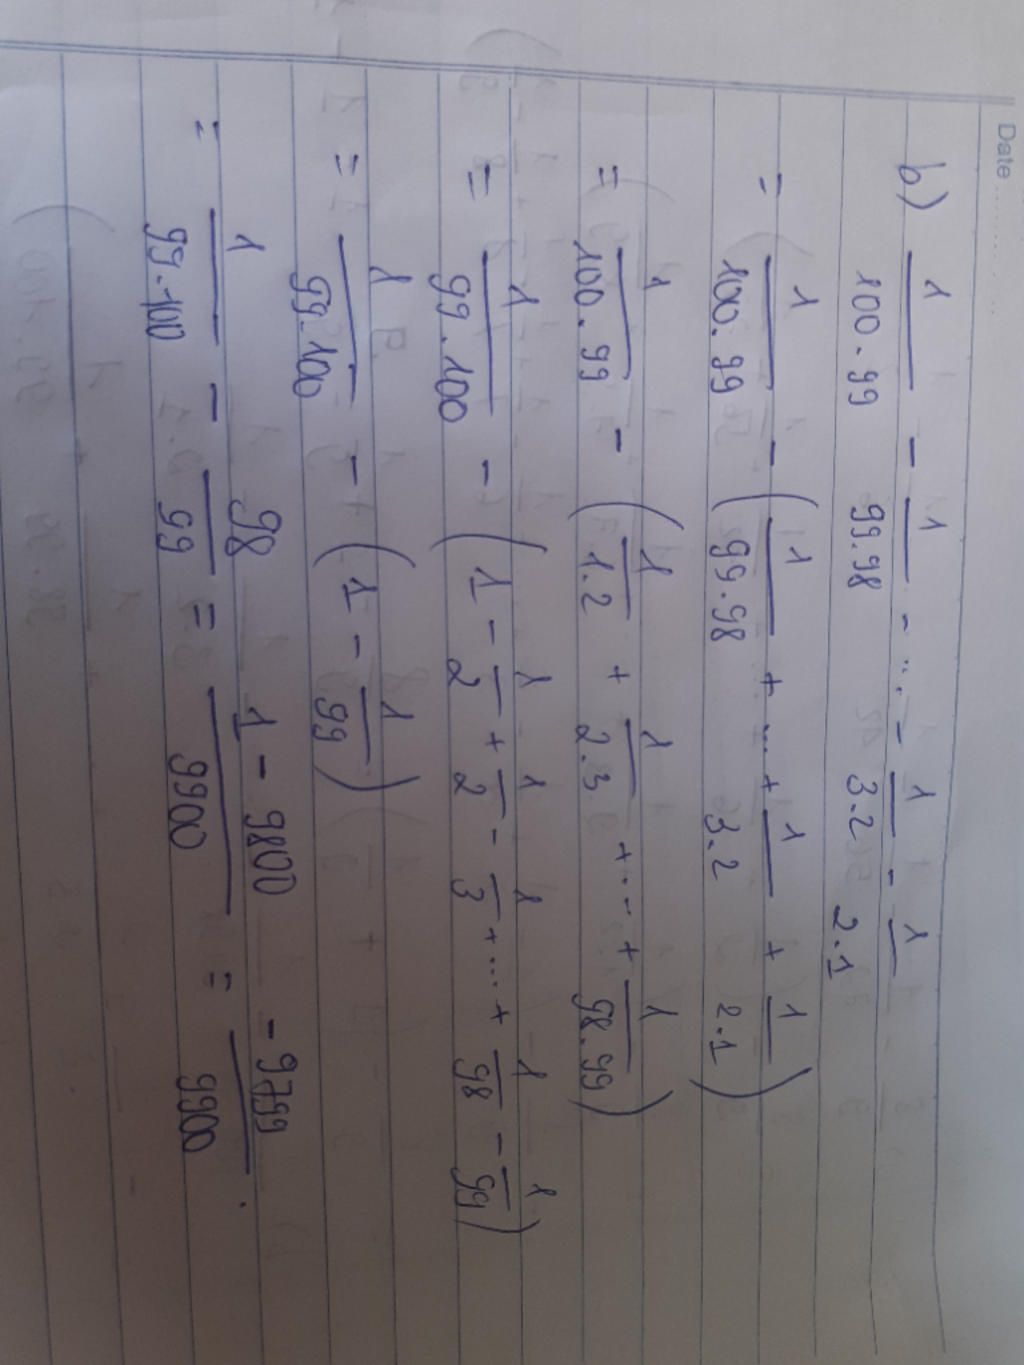 Date ..........
b) 1/100.99 - 1/99.98 - ... - 1/3.2 - 1/2.1
= 1/100.99 - (1/99.98 + ... + 1/3.2 + 1/2.1)
= 1/100.99 - (1/1.2 + 1/2.3 + ... + 1/98.99)
= 1/99.100 - (1 - 1/2 + 1/2 - 1/3 + ... + 1/98 - 1/99)
= 1/99.100 - (1 - 1/99)
= 1/99.100 - 98/99 = 1 - 9800/9900 = -9799/9900.